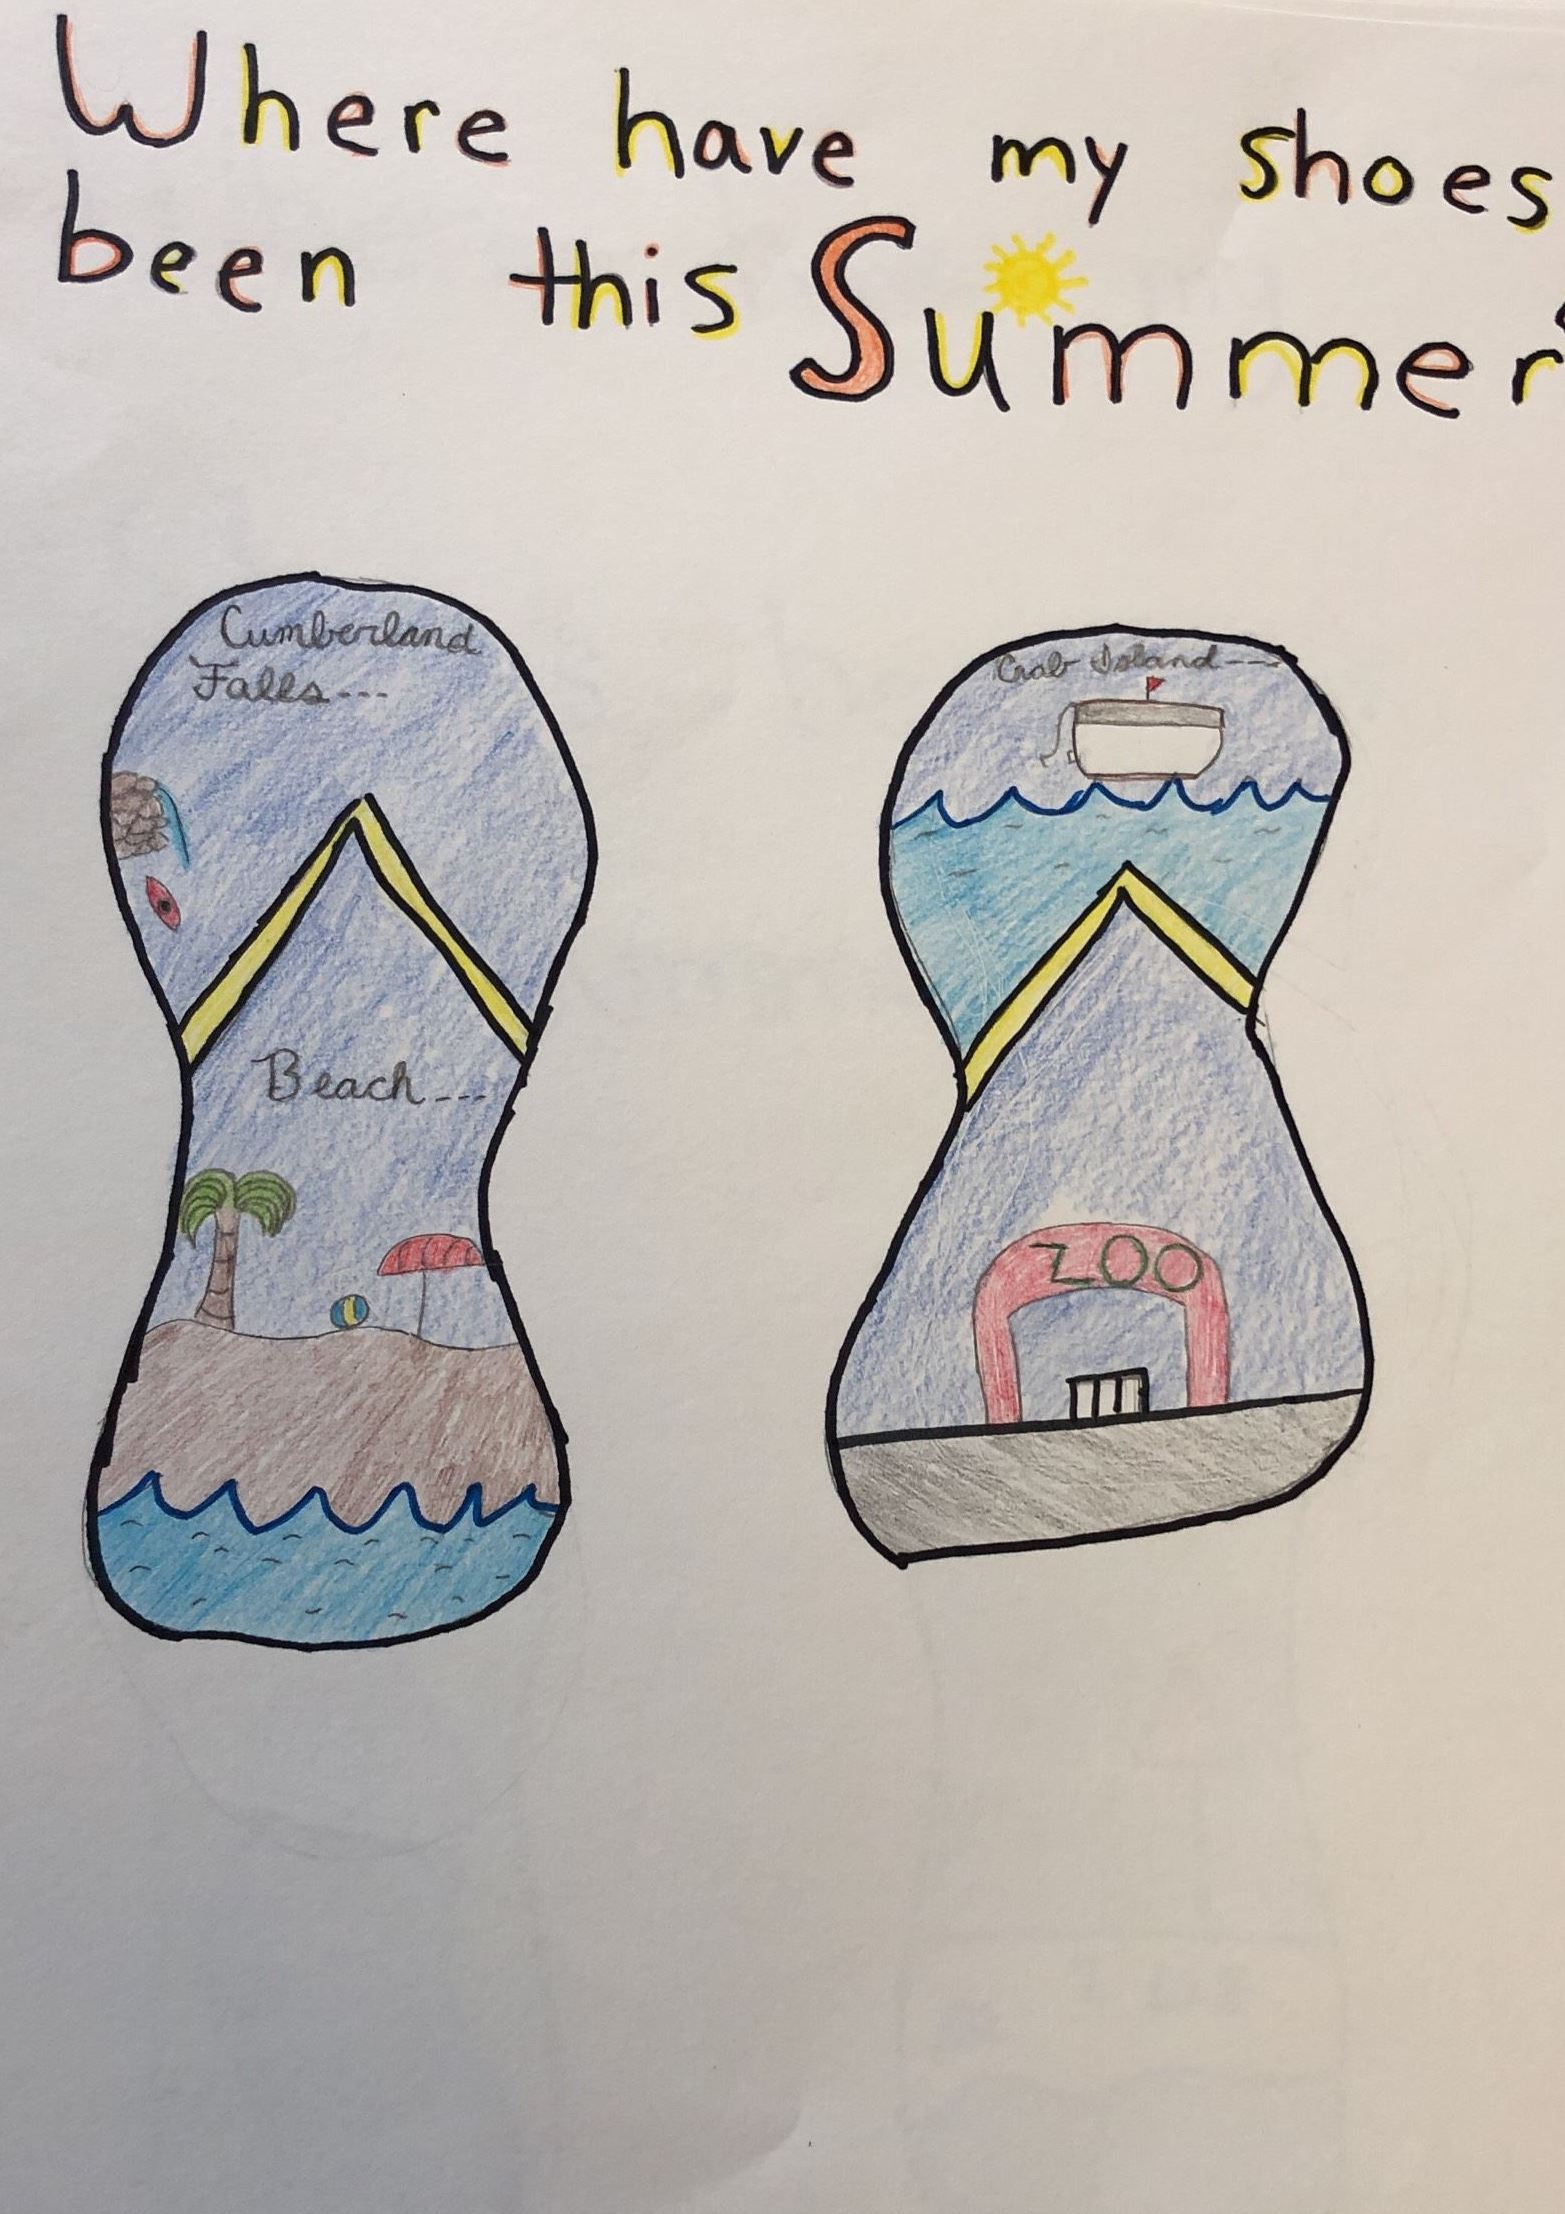 Where have my shoes
been this Summer
Cumberland
Falls---
Beach---
Crab Island---
ZOO